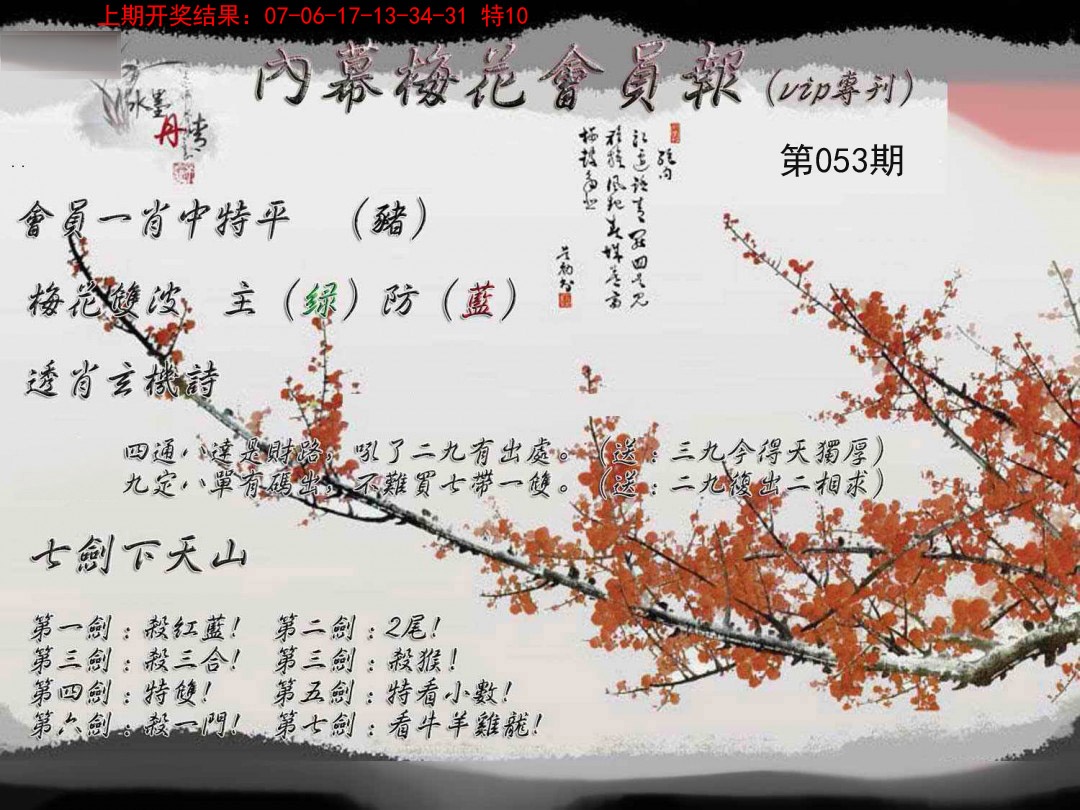 上期开奖结果：07-06-17-13-34-31 特10
內幕梅花會員報（vip專刊）
水墨
丹青
第053期
會員一肖中特平 （豬）
梅花雙波 主（绿）防（藍）
透肖玄機詩
四通八達是財路，吼了二九有出處。（送：三九今得天獨厚）
九定八單有碼出，不難買七帶一雙。（送：二九復出二相求）
七劍下天山
第一劍：殺红藍！ 第二劍：2尾！
第三劍：殺三合！ 第三劍：殺猴！
第四劍：特雙！ 第五劍：特看小數！
第六劍：殺一門！ 第七劍：看牛羊雞龍！